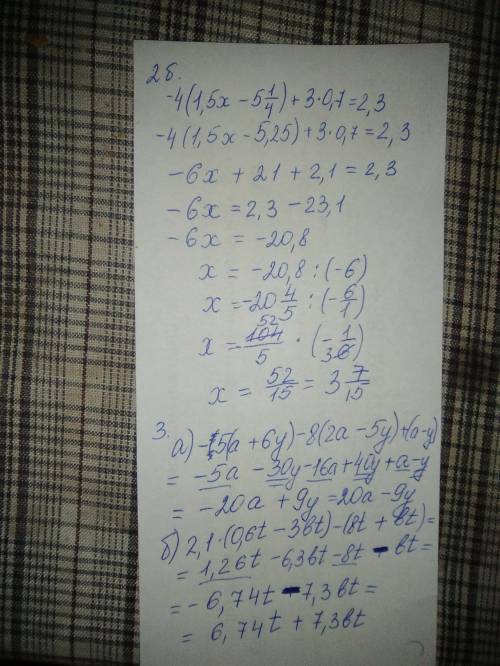 2б.
-4(1,5x - 5 1/4) + 3·0,7 = 2,3
-4(1,5x - 5,25) + 3·0,7 = 2,3
-6x + 21 + 2,1 = 2,3
-6x = 2,3 - 23,1
-6x = -20,8
x = -20,8 : (-6)
x = -20 4/5 : (-6/1)
x = 104/5 · (-1/6) 52 3
x = 52/15 = 3 7/15
3.
а) -5(a + 6y) - 8(2a - 5y) + (a - y)
= -5a - 30y - 16a + 40y + a - y
= -20a + 9y = 20a - 9y
б) 2,1·(0,6t - 3bt) - (8t + bt) =
= 1,26t - 6,3bt - 8t - bt =
= -6,74t - 7,3bt =
= 6,74t + 7,3bt